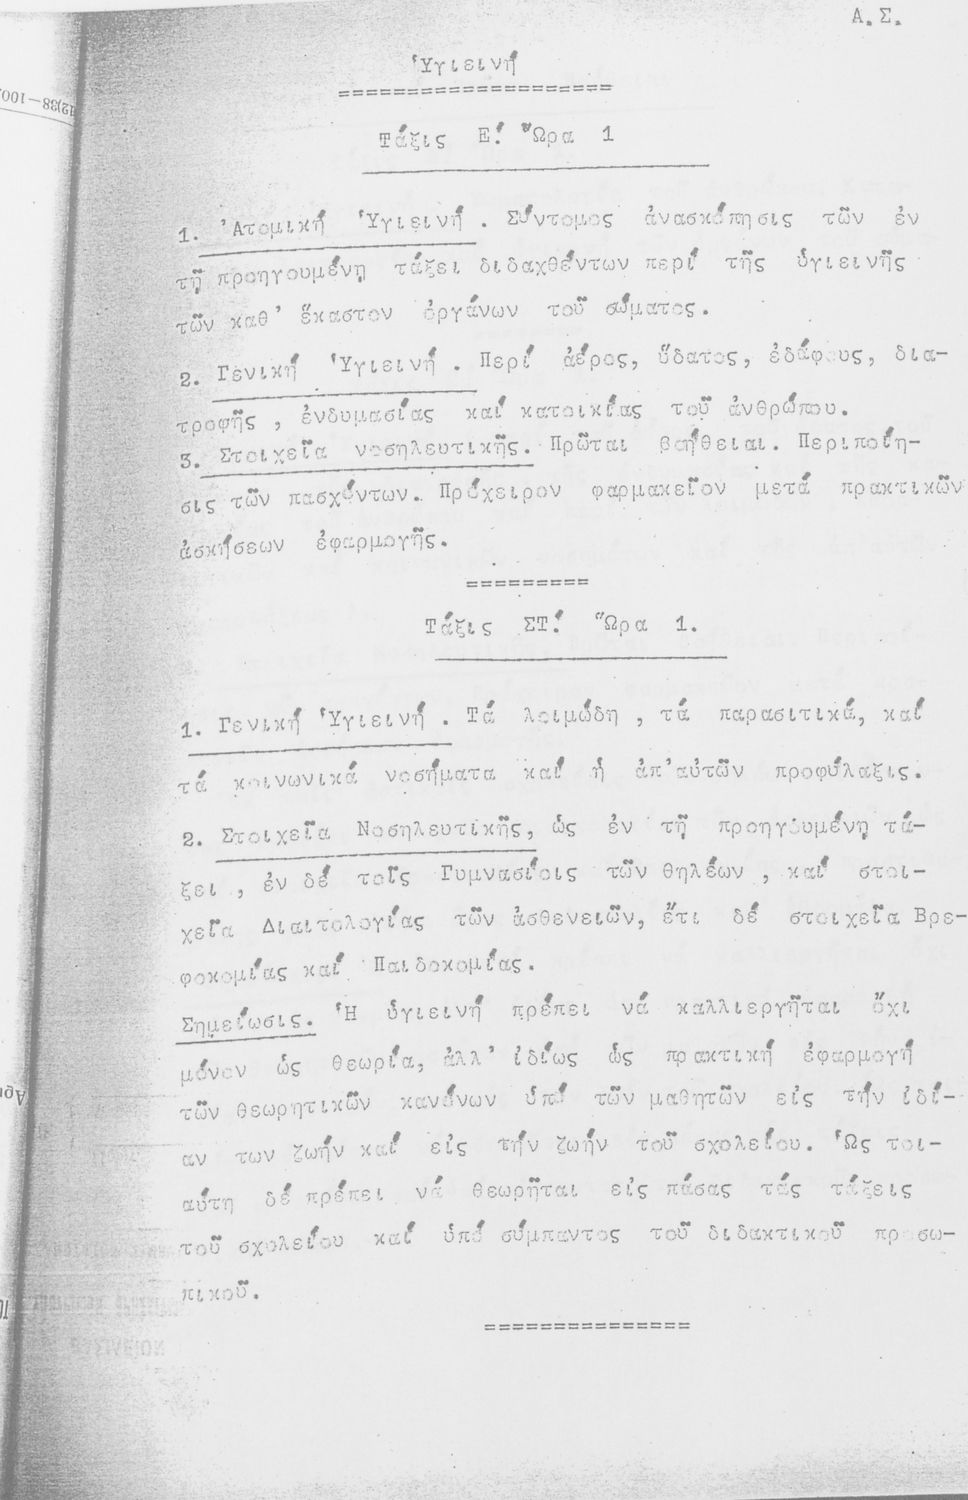 Α.Σ.
Ὑγιεινή
====================
Τάξις Ε! Ὥρα 1
1. Ἀτομική Ὑγιεινή . Σύντομος ἀνασκόπησις τῶν ἐν
τῇ προηγουμένῃ τάξει διδαχθέντων περί τῆς ὑγιεινῆς
τῶν καθ' ἕκαστον ὀργάνων τοῦ σώματος.
2. Γενική Ὑγιεινή . Περί ἀέρος, ὕδατος, ἐδάφους, δια-
τροφῆς , ἐνδυμασίας καί κατοικίας τοῦ ἀνθρώπου.
3. Στοιχεῖα νοσηλευτικῆς. Πρῶται βοήθειαι. Περιποίη-
σις τῶν πασχόντων. Πρόχειρον φαρμακεῖον μετά πρακτικῶν
ἀσκήσεων ἐφαρμογῆς.
=========
Τάξις ΣΤ! Ὥρα 1.
1. Γενική Ὑγιεινή . Τά λοιμώδη , τά παρασιτικά, καί
τά κοινωνικά νοσήματα καί ἡ ἀπ'αὐτῶν προφύλαξις.
2. Στοιχεῖα Νοσηλευτικῆς, ὡς ἐν τῇ προηγουμένῃ τά-
ξει , ἐν δέ τοῖς Γυμνασίοις τῶν θηλέων , καί στοι-
χεῖα Διαιτολογίας τῶν ἀσθενειῶν, ἔτι δέ στοιχεῖα Βρε-
φοκομίας καί Παιδοκομίας.
Σημείωσις. Ἡ ὑγιεινή πρέπει νά καλλιεργῆται ὄχι
μόνον ὡς θεωρία, ἀλλ' ἰδίως ὡς πρακτική ἐφαρμογή
τῶν θεωρητικῶν κανόνων ὑπό τῶν μαθητῶν εἰς τήν ἰδί-
αν των ζωήν καί εἰς τήν ζωήν τοῦ σχολείου. Ὡς τοι-
αύτη δέ πρέπει νά θεωρῆται εἰς πάσας τάς τάξεις
τοῦ σχολείου καί ὑπό σύμπαντος τοῦ διδακτικοῦ προσω-
πικοῦ.
===============